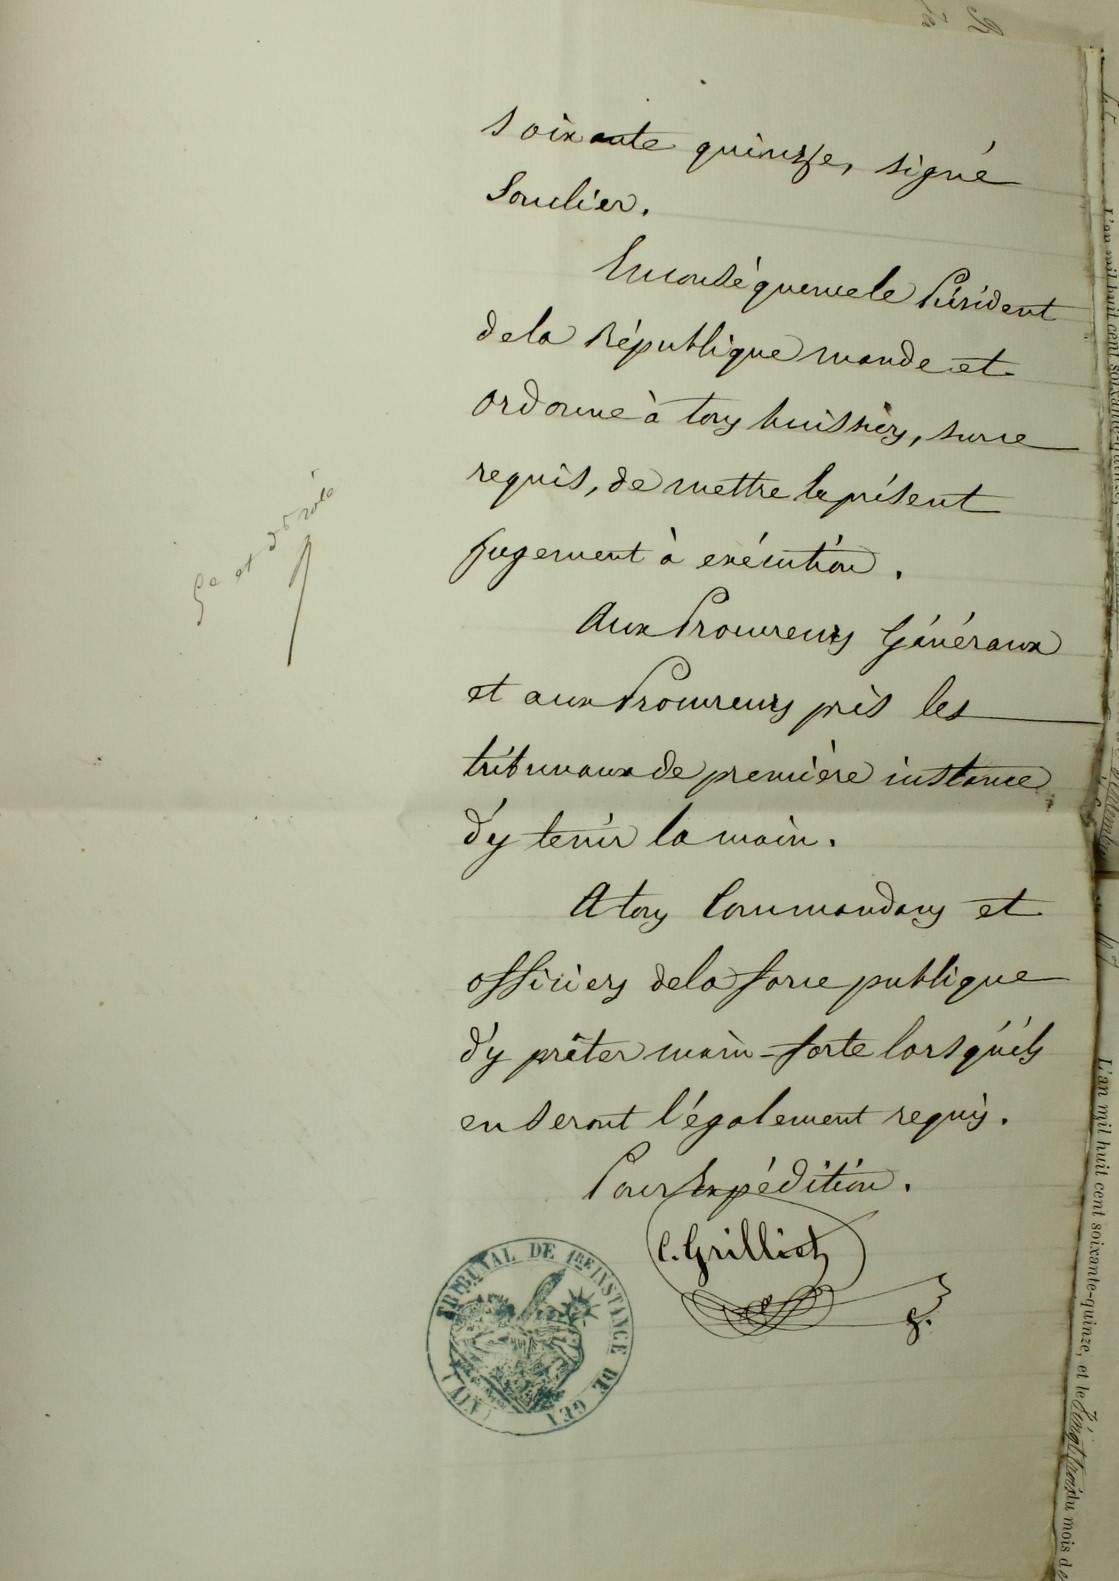 soixante quinze, signé
Soulier.
En conséquence le Président
de la République mande et
ordonne à tous huissiers, sur ce
requis, de mettre le présent
jugement à exécution.
Aux Procureurs Généraux
et aux Procureurs près les
tribunaux de première instance
d'y tenir la main.
A tous Commandans et
officiers de la force publique
d'y prêter main-forte lorsqu'ils
en seront légalement requis.
Pour Expédition.
C. Grilliet
TRIBUNAL DE 1RE INSTANCE DE GEX
(AIN)
5e et dr rôle
L'an mil huit cent soixante-quinze, et le Vingt trois du mois de